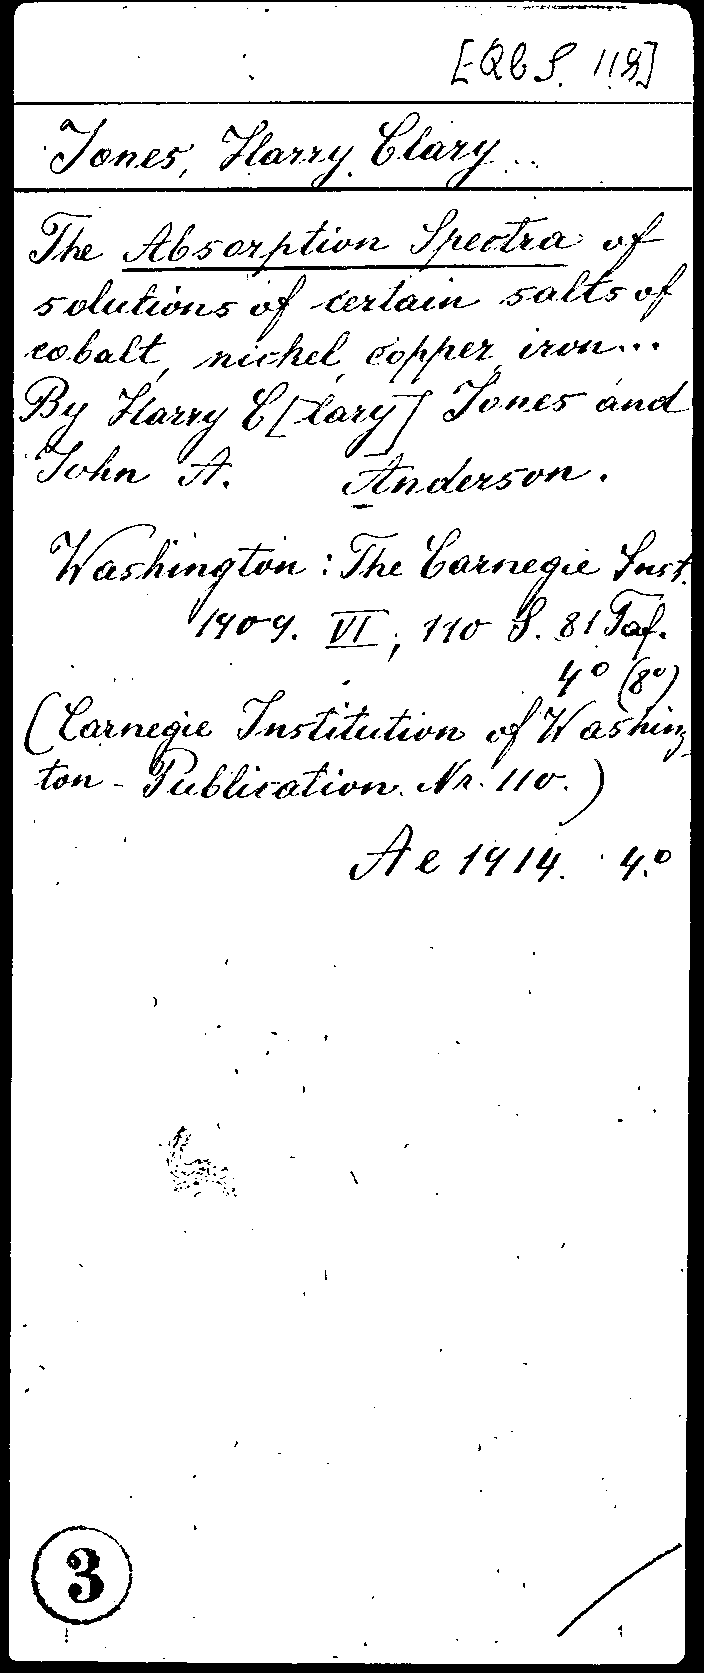 [QbS. 118]
Jones, Harry Clary
The Absorption Spectra of
solutions of certain salts of
cobalt, nickel, copper, iron...
By Harry C[lary] Jones and
John A. Anderson.
Washington: The Carnegie Inst.
1909. VI, 110 S. 81 Taf.
4° (8°)
(Carnegie Institution of Washing-
ton - Publication. Nr. 110.)
Ae 1914. 4.°
3